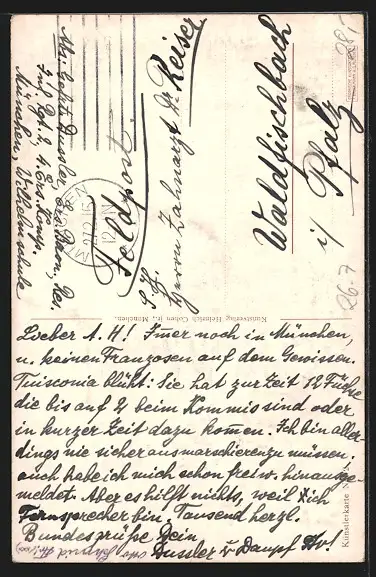 Feldpost.
S. H.
Herrn Zahnarzt Reiser
Waldfischbach
i/ Pfalz
Abs: Gefr. Dussler,
Inf. Regt. 2, 4. Ers. Komp.
München,
MÜNCHEN
Kunstverlag Heinrich Cohen jr., München.
26-7
Lieber A. H! Immer noch in München,
u. keinen Franzosen auf dem Gewissen.
Tuisconia blüht: Sie hat zur Zeit 12 Füchse
die bis auf 2 beim Kommis sind oder
in kurzer Zeit dazu kommen. Ich bin aller-
dings nie sicher ausmarschieren zu müssen.
auch habe ich mich schon freiw. hinausge-
meldet. Aber es hilft nichts, weil ich
Fernsprecher bin. Tausend herzl.
Bundesgrüße Dein
Dussler v. Dampf
Künstlerkarte